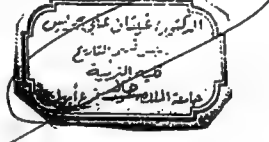 الدكتور: غيثان علي جريس
رئيس قسم التاريخ
كلية التربية
جامعة الملك خالد فرع أبها